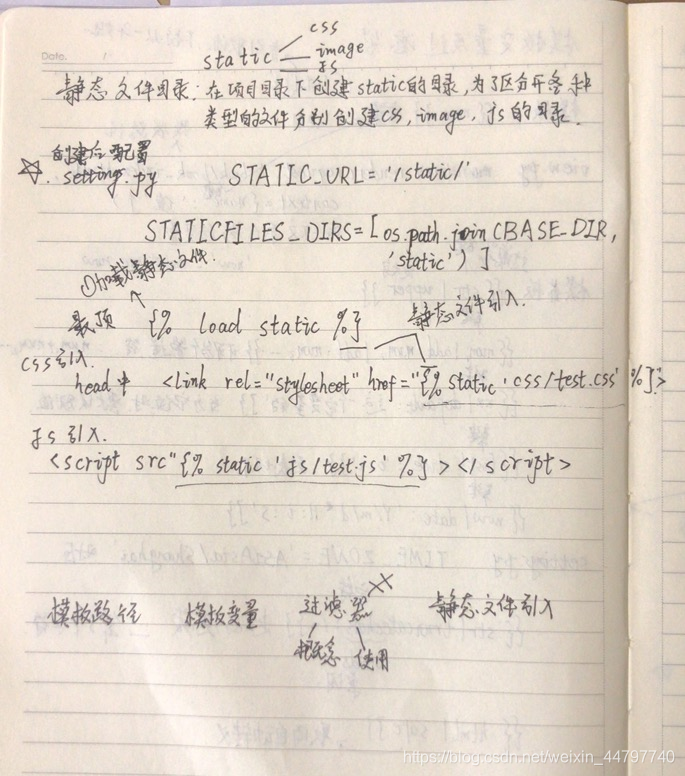 Date.
css
static image
js
静态文件目录: 在项目目录下创建static的目录,为了区分开各种
类型的文件分别创建css, image, js的目录.
创建后配置
☆. setting.py STATIC_URL = '/static/'
STATICFILES_DIRS = [os.path.join(BASE_DIR,
'static')]
①加载静态文件.
最顶 {% load static %} 静态文件引入.
css引入.
head中 <link rel="stylesheet" href="{% static 'css/test.css' %}">
js引入.
<script src"{% static 'js/test.js' %}></script>
模板路径 模板变量 过滤器 静态文件引入
概念 使用
https://blog.csdn.net/weixin_44797740